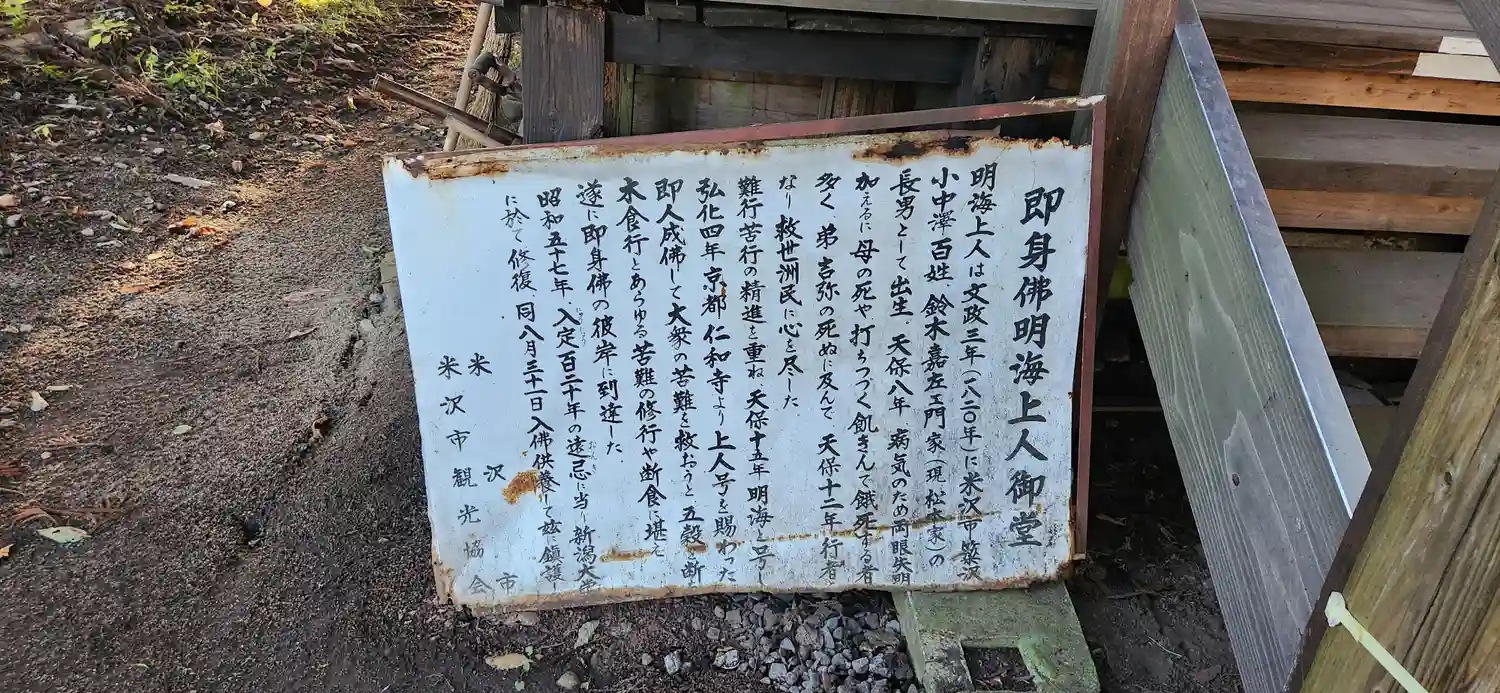 即身佛明海上人御堂
明海上人は文政三年(一八二〇年)に米沢市簗沢
小中澤百姓、鈴木嘉左エ門家(現松本家)の
長男として出生、天保八年 病気のため両眼失明
加えるに 母の死や打ちつづく飢きんで餓死する者
多く、弟 吉弥の死ぬに及んで、天保十二年 行者
なり 救世洲民に心を尽した
難行苦行の精進を重ね 天保十五年 明海と号し
弘化四年 京都 仁和寺より 上人号を賜わった
即人成佛して大衆の苦難を救おうと 五穀を断
木食行とあらゆる苦難の修行や断食に堪え
遂に即身佛の彼岸に到達した
昭和五十七年、入定百二十年の遠忌に当り新潟大
に於て修復 同八月三十一日入佛供養して茲に鎮護
米沢市
米沢市観光協会